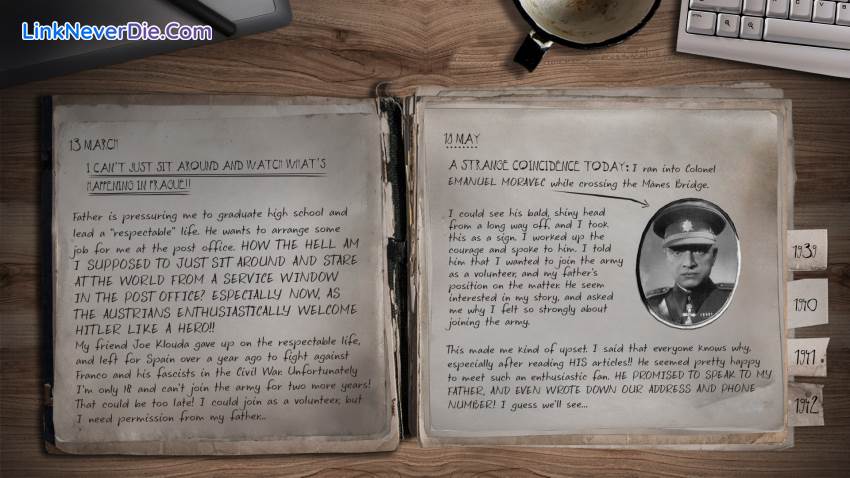 LinkNeverDie.Com
13 MARCH
I CAN'T JUST SIT AROUND AND WATCH WHAT'S
HAPPENING IN PRAGUE!!
Father is pressuring me to graduate high school and
lead a "respectable" life. He wants to arrange some
job for me at the post office. HOW THE HELL AM
I SUPPOSED TO JUST SIT AROUND AND STARE
AT THE WORLD FROM A SERVICE WINDOW
IN THE POST OFFICE? ESPECIALLY NOW, AS
THE AUSTRIANS ENTHUSIASTICALLY WELCOME
HITLER LIKE A HERO!!
My friend Joe Klouda gave up on the respectable life,
and left for Spain over a year ago to fight against
Franco and his fascists in the Civil War. Unfortunately
I'm only 18 and can't join the army for two more years!
That could be too late! I could join as a volunteer, but
I need permission from my father...
18 MAY
A STRANGE COINCIDENCE TODAY: I ran into Colonel
EMANUEL MORAVEC while crossing the Manes Bridge.
I could see his bald, shiny head
from a long way off, and I took
this as a sign. I worked up the
courage and spoke to him. I told
him that I wanted to join the army
as a volunteer, and my father's
position on the matter. He seem
interested in my story, and asked
me why I felt so strongly about
joining the army.
This made me kind of upset. I said that everyone knows why,
especially after reading HIS articles!! He seemed pretty happy
to meet such an enthusiastic fan. HE PROMISED TO SPEAK TO MY
FATHER, AND EVEN WROTE DOWN OUR ADDRESS AND PHONE
NUMBER! I guess we'll see...
1939
1940
1941
1942